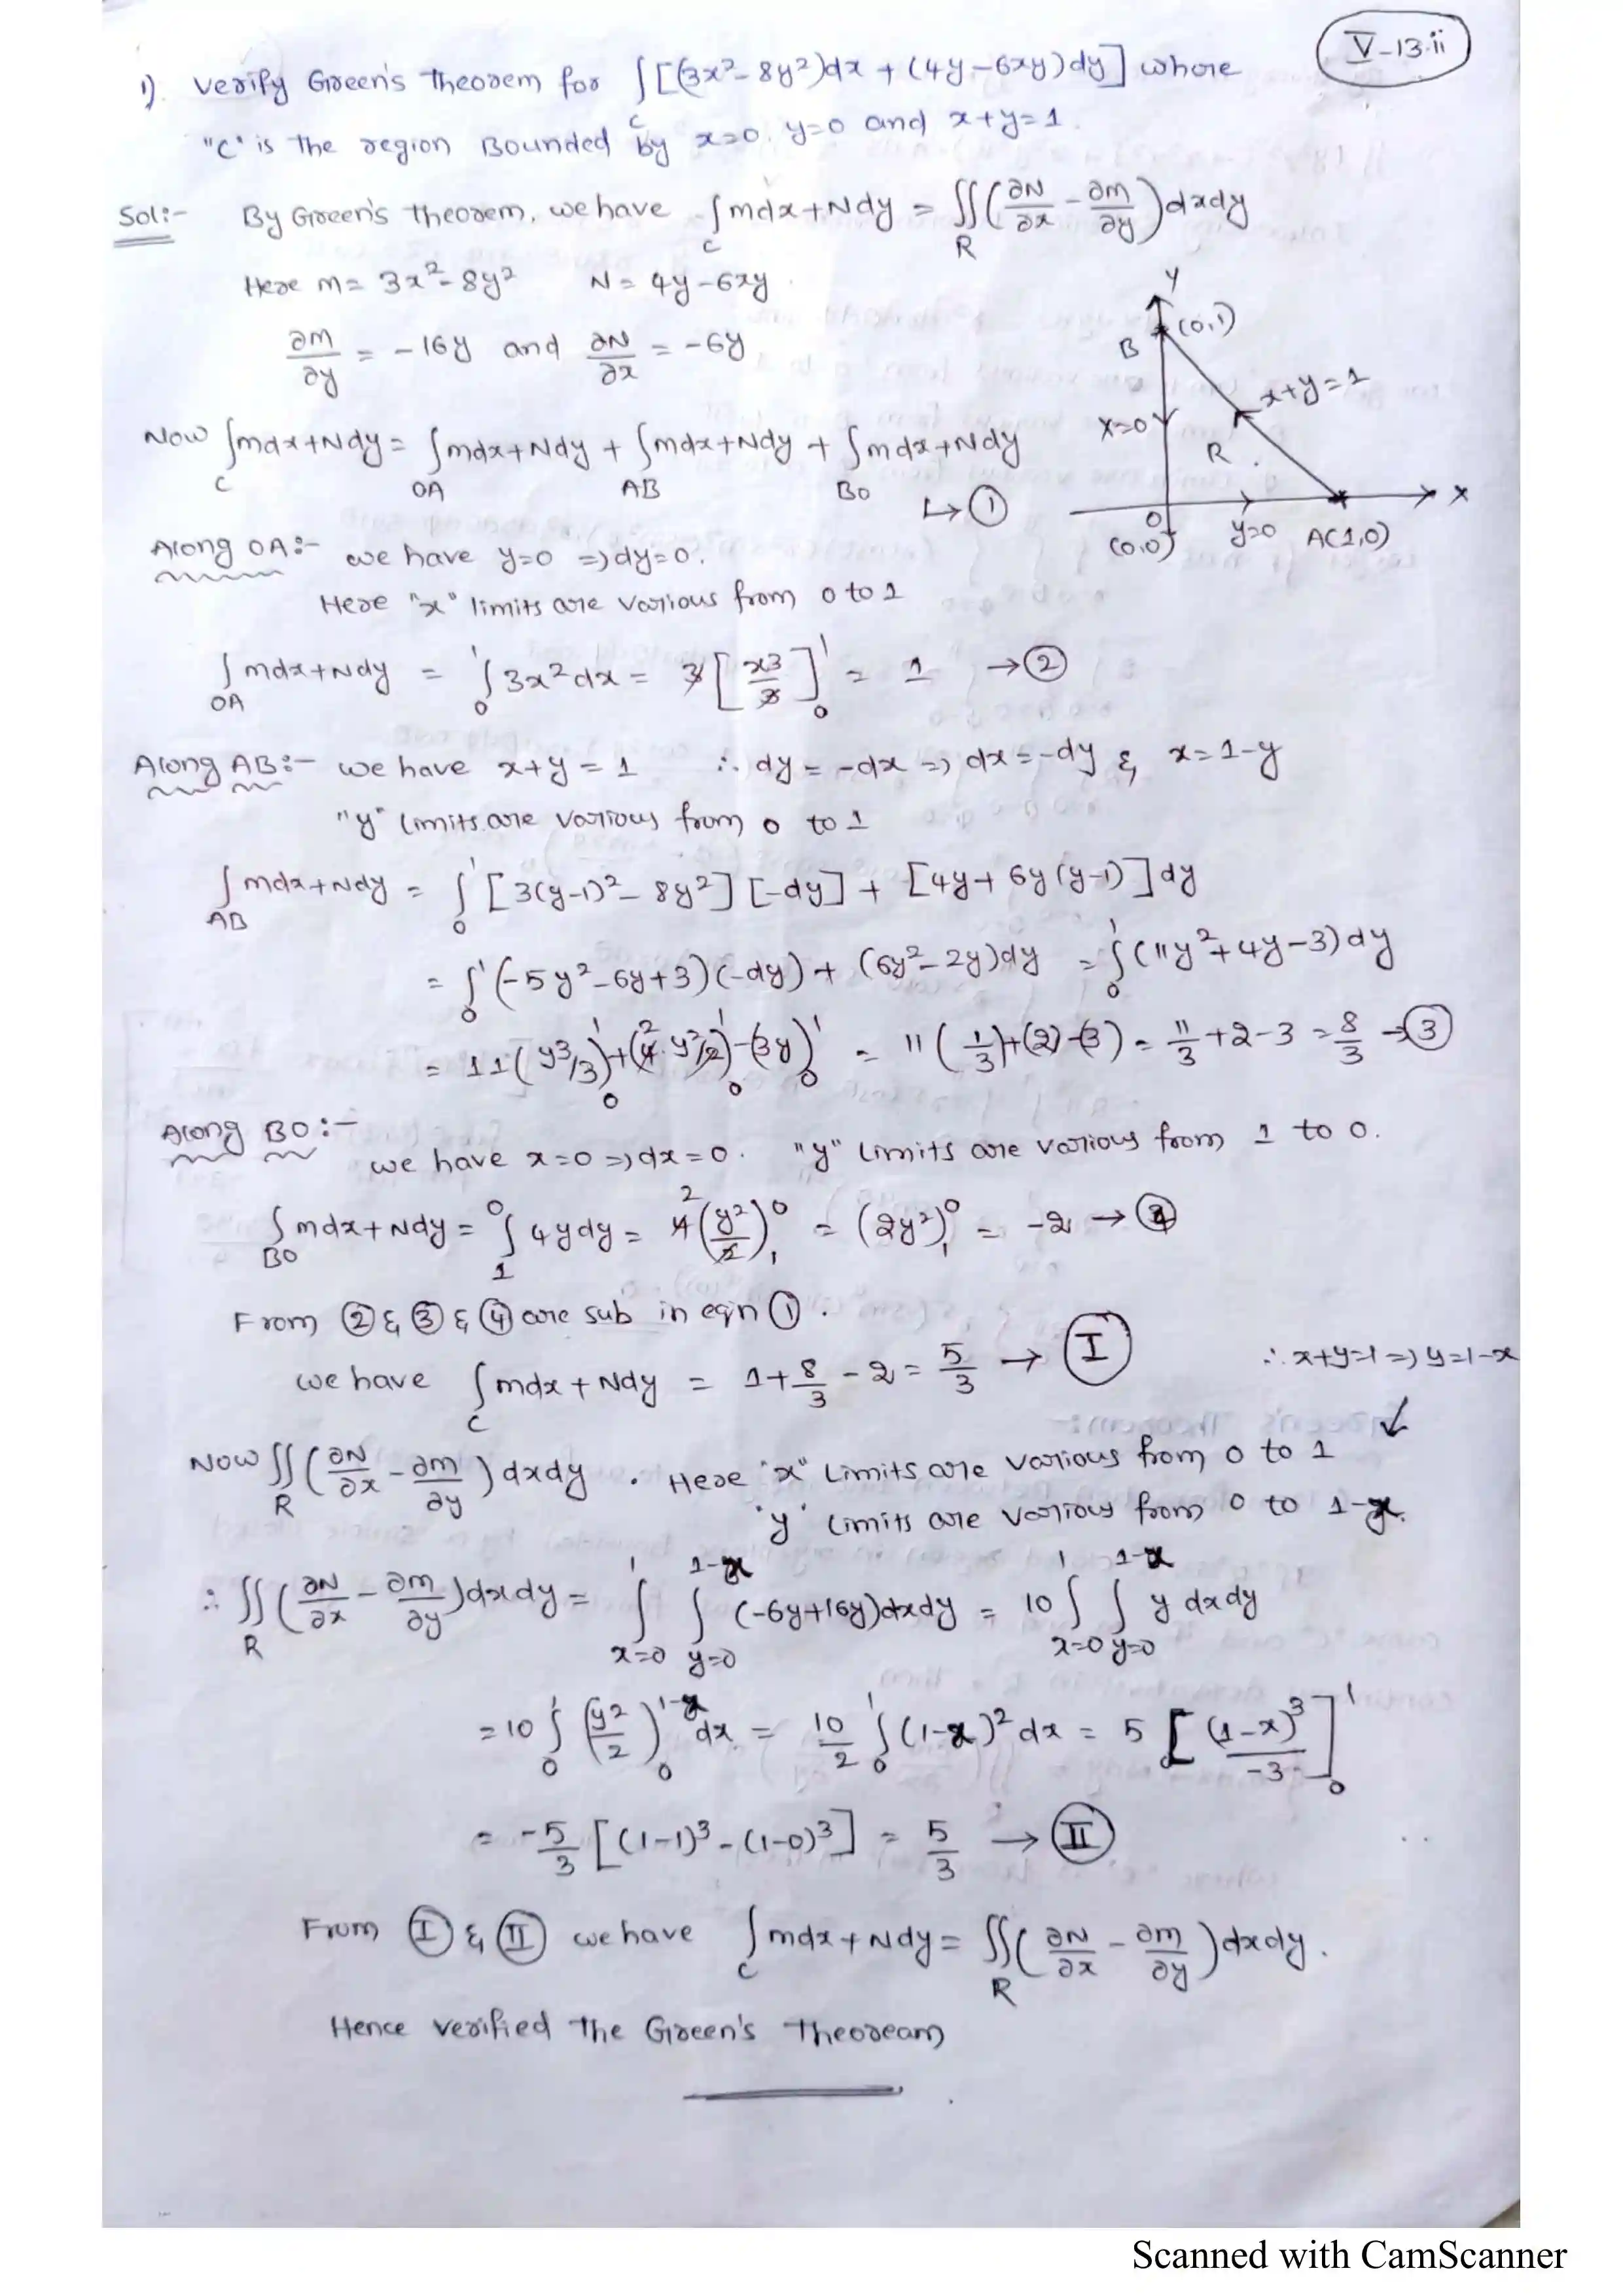 V-13.ii
1). Verify Green's Theorem for ∫_C [(3x²-8y²)dx + (4y-6xy)dy] where
"C" is the region Bounded by x=0, y=0 and x+y=1.
Sol:- By Green's theorem, we have ∫_C mdx+Ndy = ∬_R (∂N/∂x - ∂m/∂y) dxdy
Here m= 3x²-8y² N= 4y-6xy
∂m/∂y = -16y and ∂N/∂x = -6y
Y
(0,1)
B
x+y=1
x=0
R
X
O
(0,0)
y=0
A(1,0)
Now ∫_C mdx+Ndy = ∫_OA mdx+Ndy + ∫_AB mdx+Ndy + ∫_BO mdx+Ndy
↳ ①
Along OA:- we have y=0 => dy=0.
Here "x" limits are various from 0 to 1
∫_OA mdx+Ndy = ∫_0^1 3x²dx = 3[x³/3]_0^1 = 1 → ②
Along AB:- we have x+y=1 ∴ dy = -dx => dx = -dy & x=1-y
"y" limits are various from 0 to 1
∫_AB mdx+Ndy = ∫_0^1 [3(y-1)²-8y²][-dy] + [4y+6y(y-1)]dy
= ∫_0^1 (-5y²-6y+3)(-dy) + (6y²-2y)dy = ∫_0^1 (11y²+4y-3)dy
= 11(y³/3)_0^1 + (4·y²/2)_0^1 - (3y)_0^1 = 11(1/3)+(2)-(3) = 11/3+2-3 = 8/3 → ③
Along BO:-
we have x=0 => dx=0. "y" limits are various from 1 to 0.
∫_BO mdx+Ndy = ∫_1^0 4ydy = 4(y²/2)_1^0 = (2y²)_1^0 = -2 → ④
From ② & ③ & ④ are sub in eqn ①.
we have ∫_C mdx+Ndy = 1+8/3-2 = 5/3 → Ⅰ
∴ x+y=1 => y=1-x
Now ∬_R (∂N/∂x - ∂m/∂y) dxdy. Here "x" Limits are various from 0 to 1
"y" limits are various from 0 to 1-x.
∴ ∬_R (∂N/∂x - ∂m/∂y)dxdy = ∫_{x=0}^1 ∫_{y=0}^{1-x} (-6y+16y)dxdy = 10 ∫_{x=0}^1 ∫_{y=0}^{1-x} y dxdy
= 10 ∫_0^1 (y²/2)_0^{1-x} dx = 10/2 ∫_0^1 (1-x)² dx = 5 [(1-x)³/-3]_0^1
= -5/3 [(1-1)³-(1-0)³] = 5/3 → Ⅱ
From Ⅰ & Ⅱ we have ∫_C mdx+Ndy = ∬_R (∂N/∂x - ∂m/∂y)dxdy.
Hence verified the Green's Theoream
Scanned with CamScanner